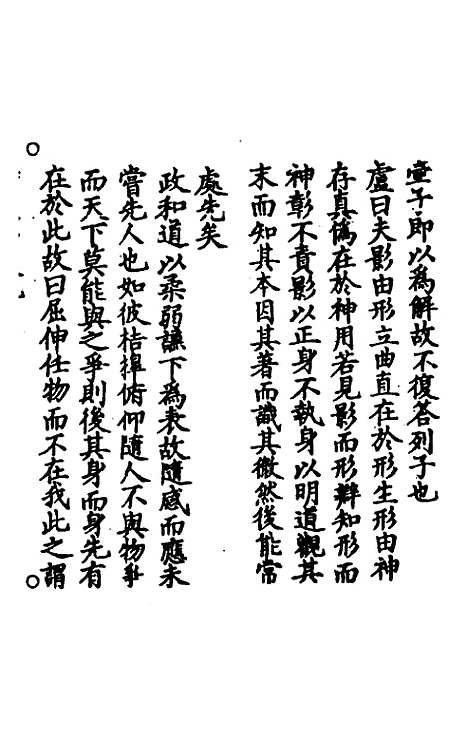 壷子即以為解故不復答列子也
盧曰夫影由形立曲直在於形生形由神
存真偽在於神用若見影而形辯知形而
神彰不責影以正身不執身以明道觀其
末而知其本因其著而識其微然後能常
處先矣
政和道以柔弱謙下為表故隨感而應未
嘗先人也如彼桔槹俯仰隨人不與物爭
而天下莫能與之爭則後其身而身先有
在於此故曰屈伸任物而不在我此之謂